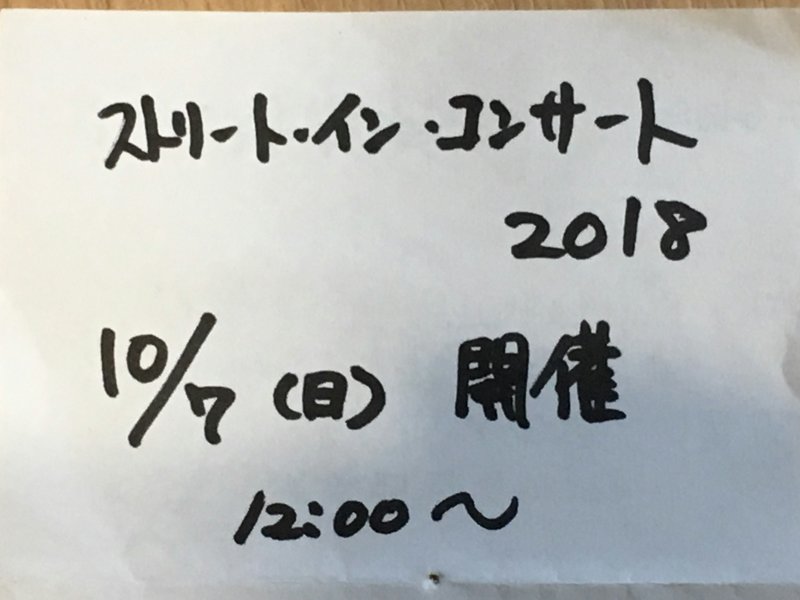 ストリート・イン・コンサート
2018
10/7（日） 開催
12:00〜